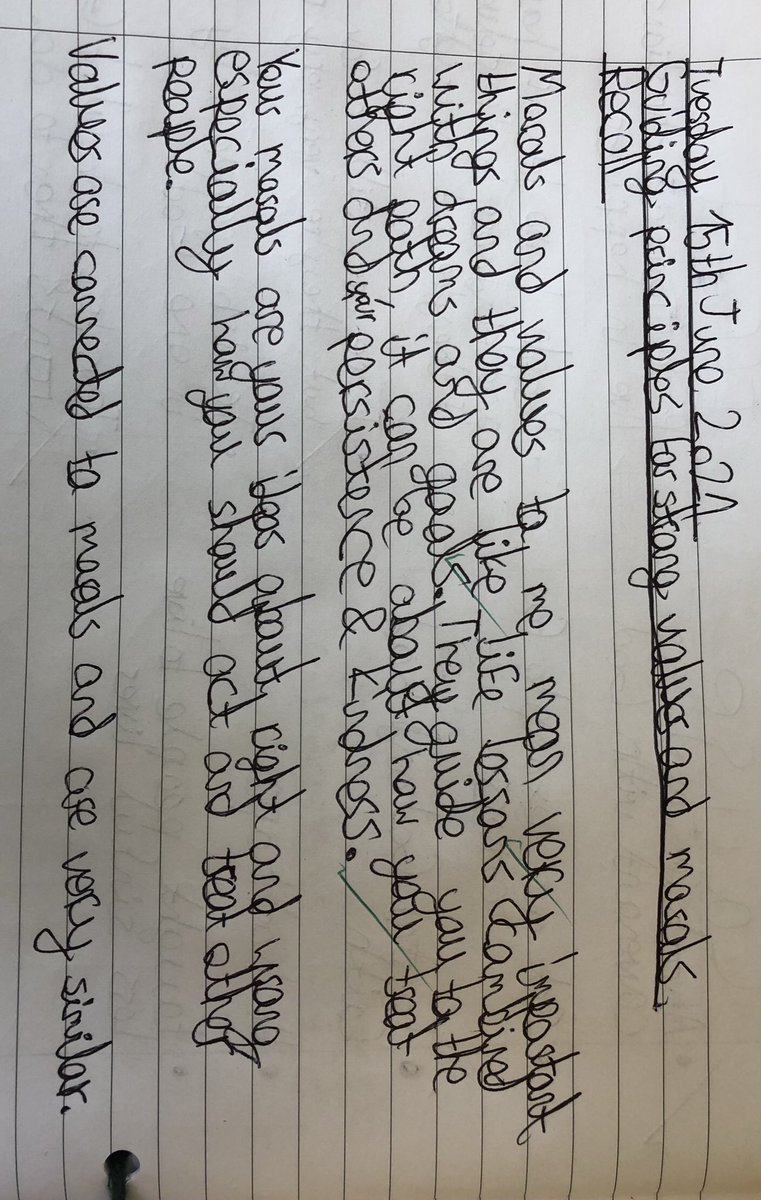 Tuesday 15th June 2021
Guiding principles for strong values and morals.
Recall
Morals and values to me mean very important
things and they are like life lessons combined
with dreams and goals. They guide you to the
right path, it can be about how you treat
others and your persistence & kindness.
Your morals are your ideas about right and wrong
especially how you should act and treat other
people.
Values are connected to morals and are very similar.